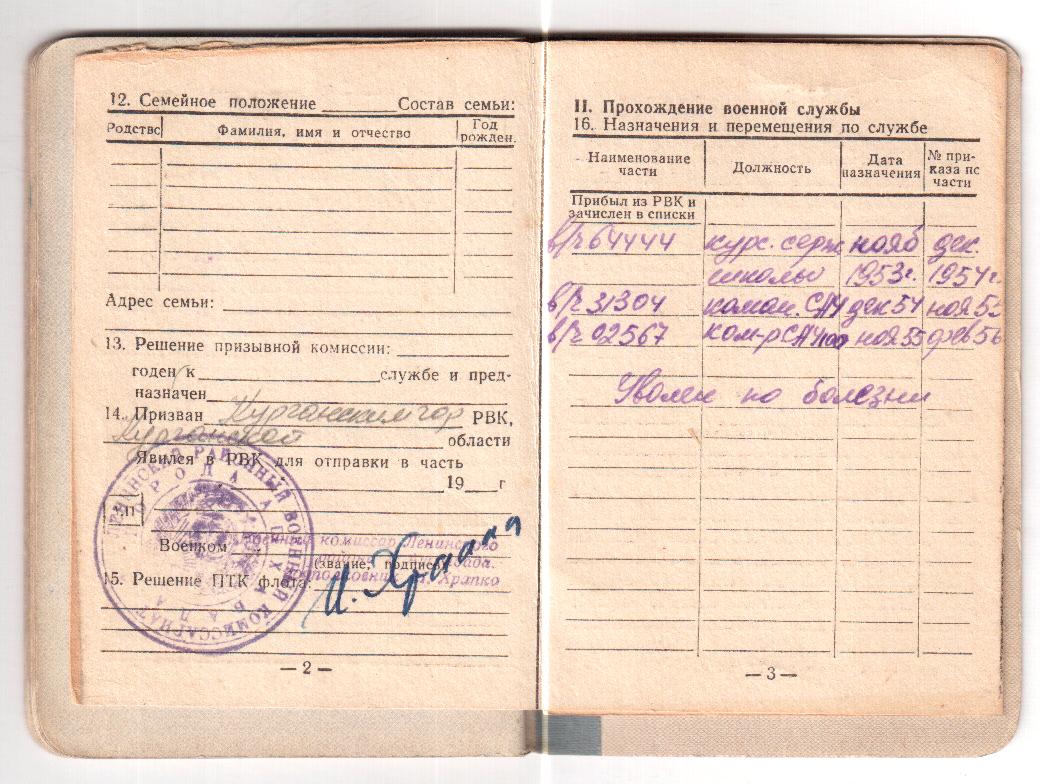 12. Семейное положение ______ Состав семьи:
Родство Фамилия, имя и отчество Год рожден.
Адрес семьи:
13. Решение призывной комиссии:
годен к ______ службе и пред-
назначен
14. Призван Курганским гор РВК,
Курганской области
Явился в РВК для отправки в часть
19 г
М.П.
Военком
Военный комиссар Ленинского
(звание, подпись)
И. Храпко
15. Решение ПТК флота:
РАЙОННЫЙ ВОЕННЫЙ КОМИССАРИАТ
ГОРОДА
— 2 —
II. Прохождение военной службы
16. Назначения и перемещения по службе
Наименование части Должность Дата назначения № при-каза по части
Прибыл из РВК и
зачислен в списки
в/ч 64444 курс. серж нояб дек.
школы 1953г. 1954г.
в/ч 31304 коман. САУ дек 54 ноя 55
в/ч 02567 ком-р САУ100 ноя 55 фев 56
Уволен по болезни
— 3 —